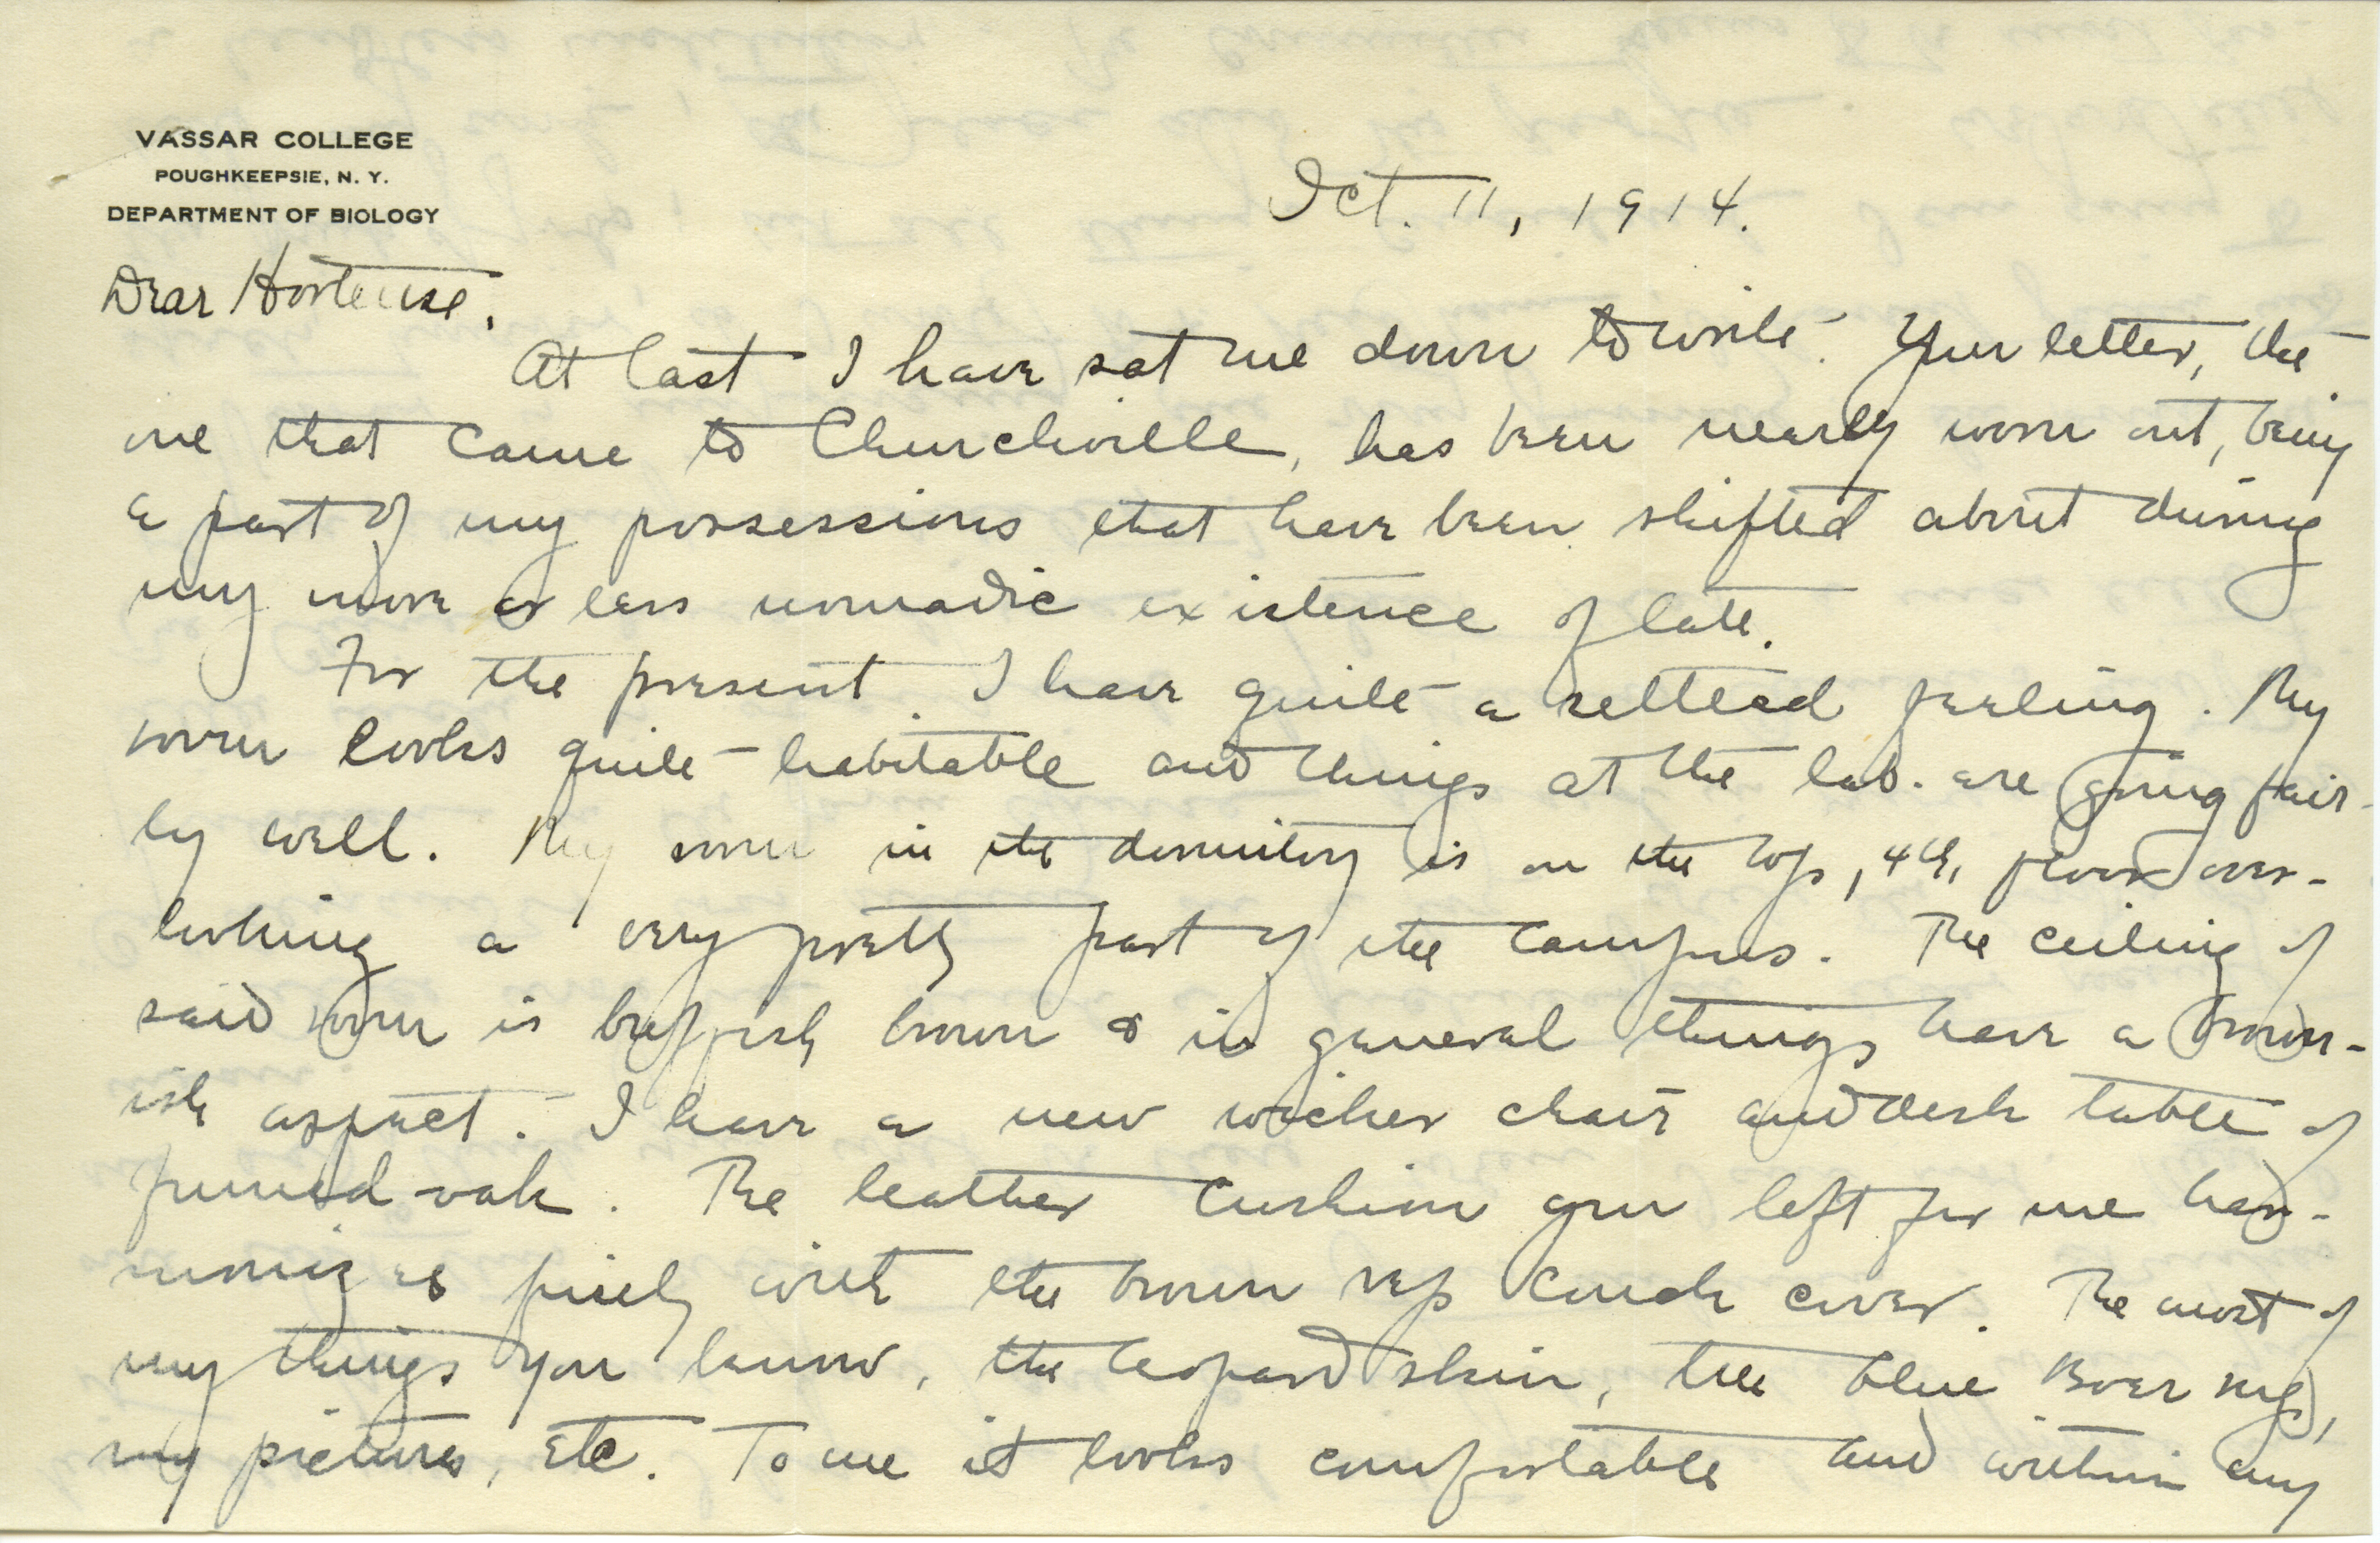 VASSAR COLLEGE
POUGHKEEPSIE, N. Y.
DEPARTMENT OF BIOLOGY
Oct. 11, 1914.
Dear Hortense,
At last I have sat me down to write. Your letter, the
one that came to Churchville, has been nearly worn out, being
a part of my possessions that have been shifted about during
my more or less nomadic existence of late.
For the present I have quite a settled feeling. My
room looks quite habitable and things at the lab. are going fair-
ly well. My room in the dormitory is on the top, 4th, floor over-
looking a very pretty part of the campus. The ceiling of
said room is buffish brown & in general things have a brown-
ish aspect. I have a new wicker chair and desk table of
fumed oak. The leather cushion you left for me har-
monizes finely with the brown rep couch cover. The most of
my things you know, the leopard skin, the blue Boer rug,
my pictures, etc. To me it looks comfortable and within my